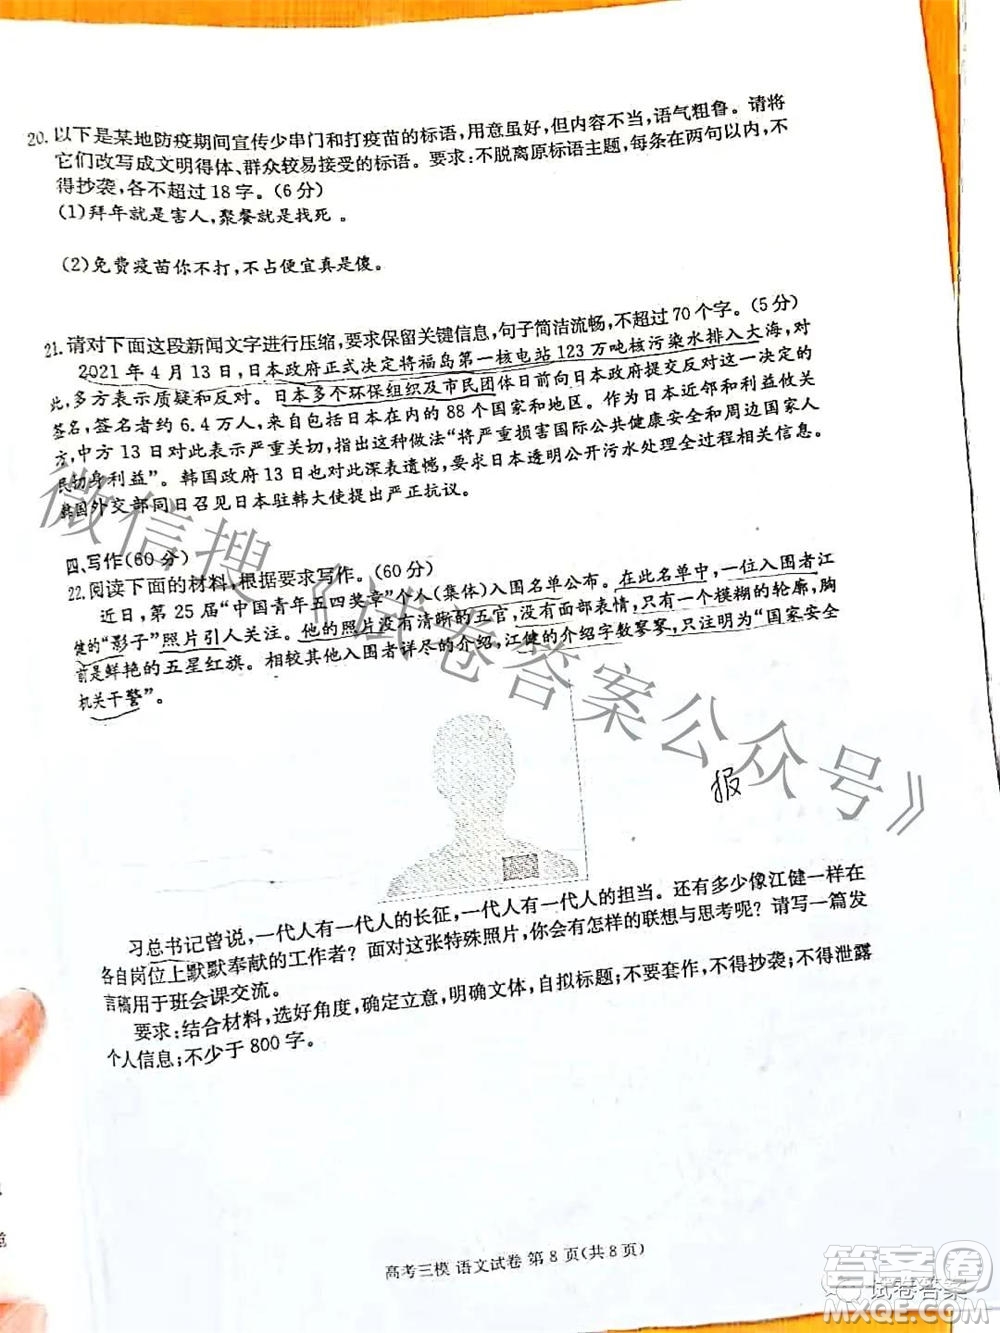 20.以下是某地防疫期间宣传少串门和打疫苗的标语,用意虽好,但内容不当,语气粗鲁。请将
它们改写成文明得体、群众较易接受的标语。要求:不脱离原标语主题,每条在两句以内,不
得抄袭,各不超过18字。(6分)
(1)拜年就是害人,聚餐就是找死。
(2)免费疫苗你不打,不占便宜真是傻。
21.请对下面这段新闻文字进行压缩,要求保留关键信息,句子简洁流畅,不超过70个字。(5分)
2021年4月13日,日本政府正式决定将福岛第一核电站123万吨核污染水排入大海,对
此,多方表示质疑和反对。日本多个环保组织及市民团体日前向日本政府提交反对这一决定的
签名,签名者约6.4万人,来自包括日本在内的88个国家和地区。作为日本近邻和利益攸关
方,中方13日对此表示严重关切,指出这种做法“将严重损害国际公共健康安全和周边国家人
民切身利益”。韩国政府13日也对此深表遗憾,要求日本透明公开污水处理全过程相关信息。
韩国外交部同日召见日本驻韩大使提出严正抗议。
四、写作(60分)
22.阅读下面的材料,根据要求写作。(60分)
近日,第25届“中国青年五四奖章”个人(集体)入围名单公布。在此名单中,一位入围者江
健的“影子”照片引人关注。他的照片没有清晰的五官,没有面部表情,只有一个模糊的轮廓,胸
前是鲜艳的五星红旗。相较其他入围者详尽的介绍,江健的介绍字数寥寥,只注明为“国家安全
机关干警”。
报
习总书记曾说,一代人有一代人的长征,一代人有一代人的担当。还有多少像江健一样在
各自岗位上默默奉献的工作者?面对这张特殊照片,你会有怎样的联想与思考呢?请写一篇发
言稿用于班会课交流。
要求:结合材料,选好角度,确定立意,明确文体,自拟标题;不要套作,不得抄袭;不得泄露
个人信息;不少于800字。
高考三模 语文试卷 第8页(共8页)
微信搜《试卷答案公众号》
试卷答案
答案圈
MXQE.COM